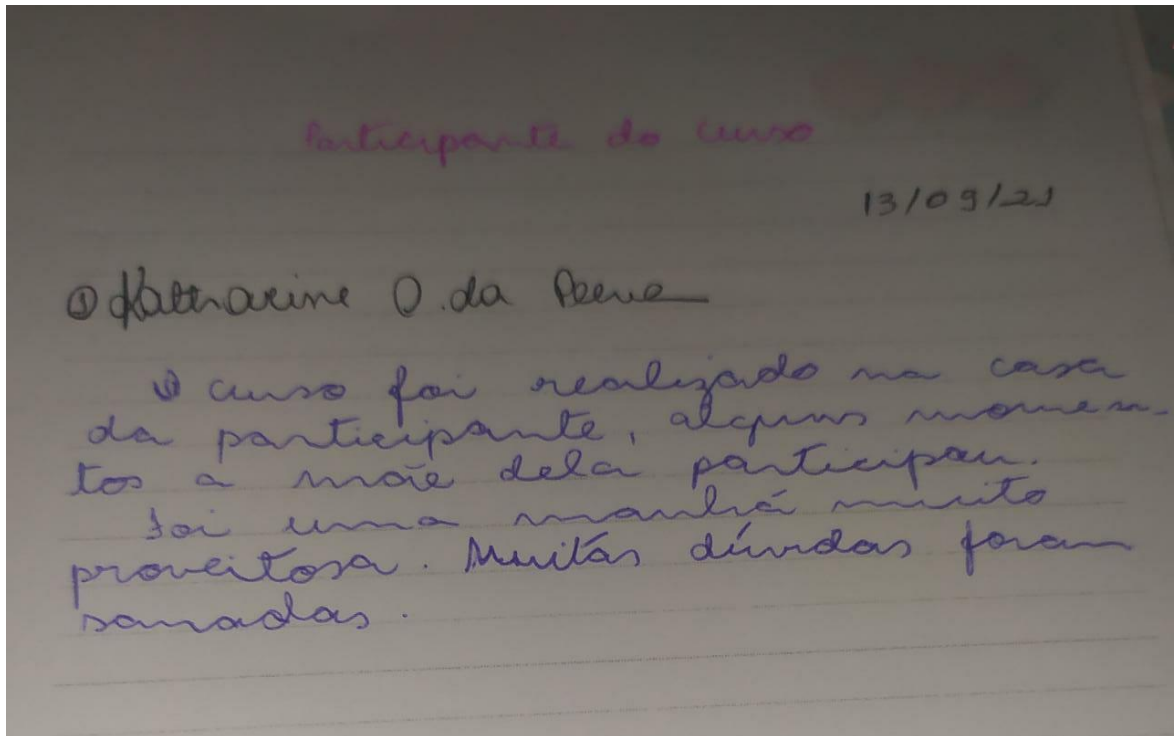 Participante do curso
13/09/21
① Katharine O. da
O curso foi realizado na casa
da participante, alguns momen-
tos a mãe dela participou.
Foi uma manhã muito
proveitosa. Muitas dúvidas foram
sanadas.